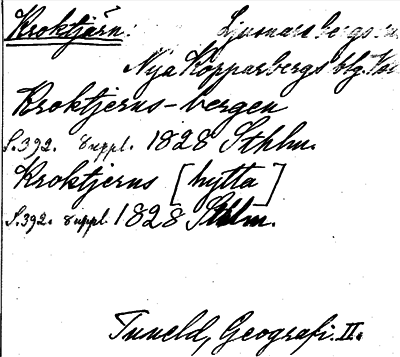 Kroktjärn: Ljusnarsbergs
Nya Kopparbergs btg.
Kroktjerns-bergen
S.392. suppl. 1828 Sthlm.
Kroktjerns [hytta]
S.392. suppl. 1828 Sthlm.
Tuneld, Geografi. II.